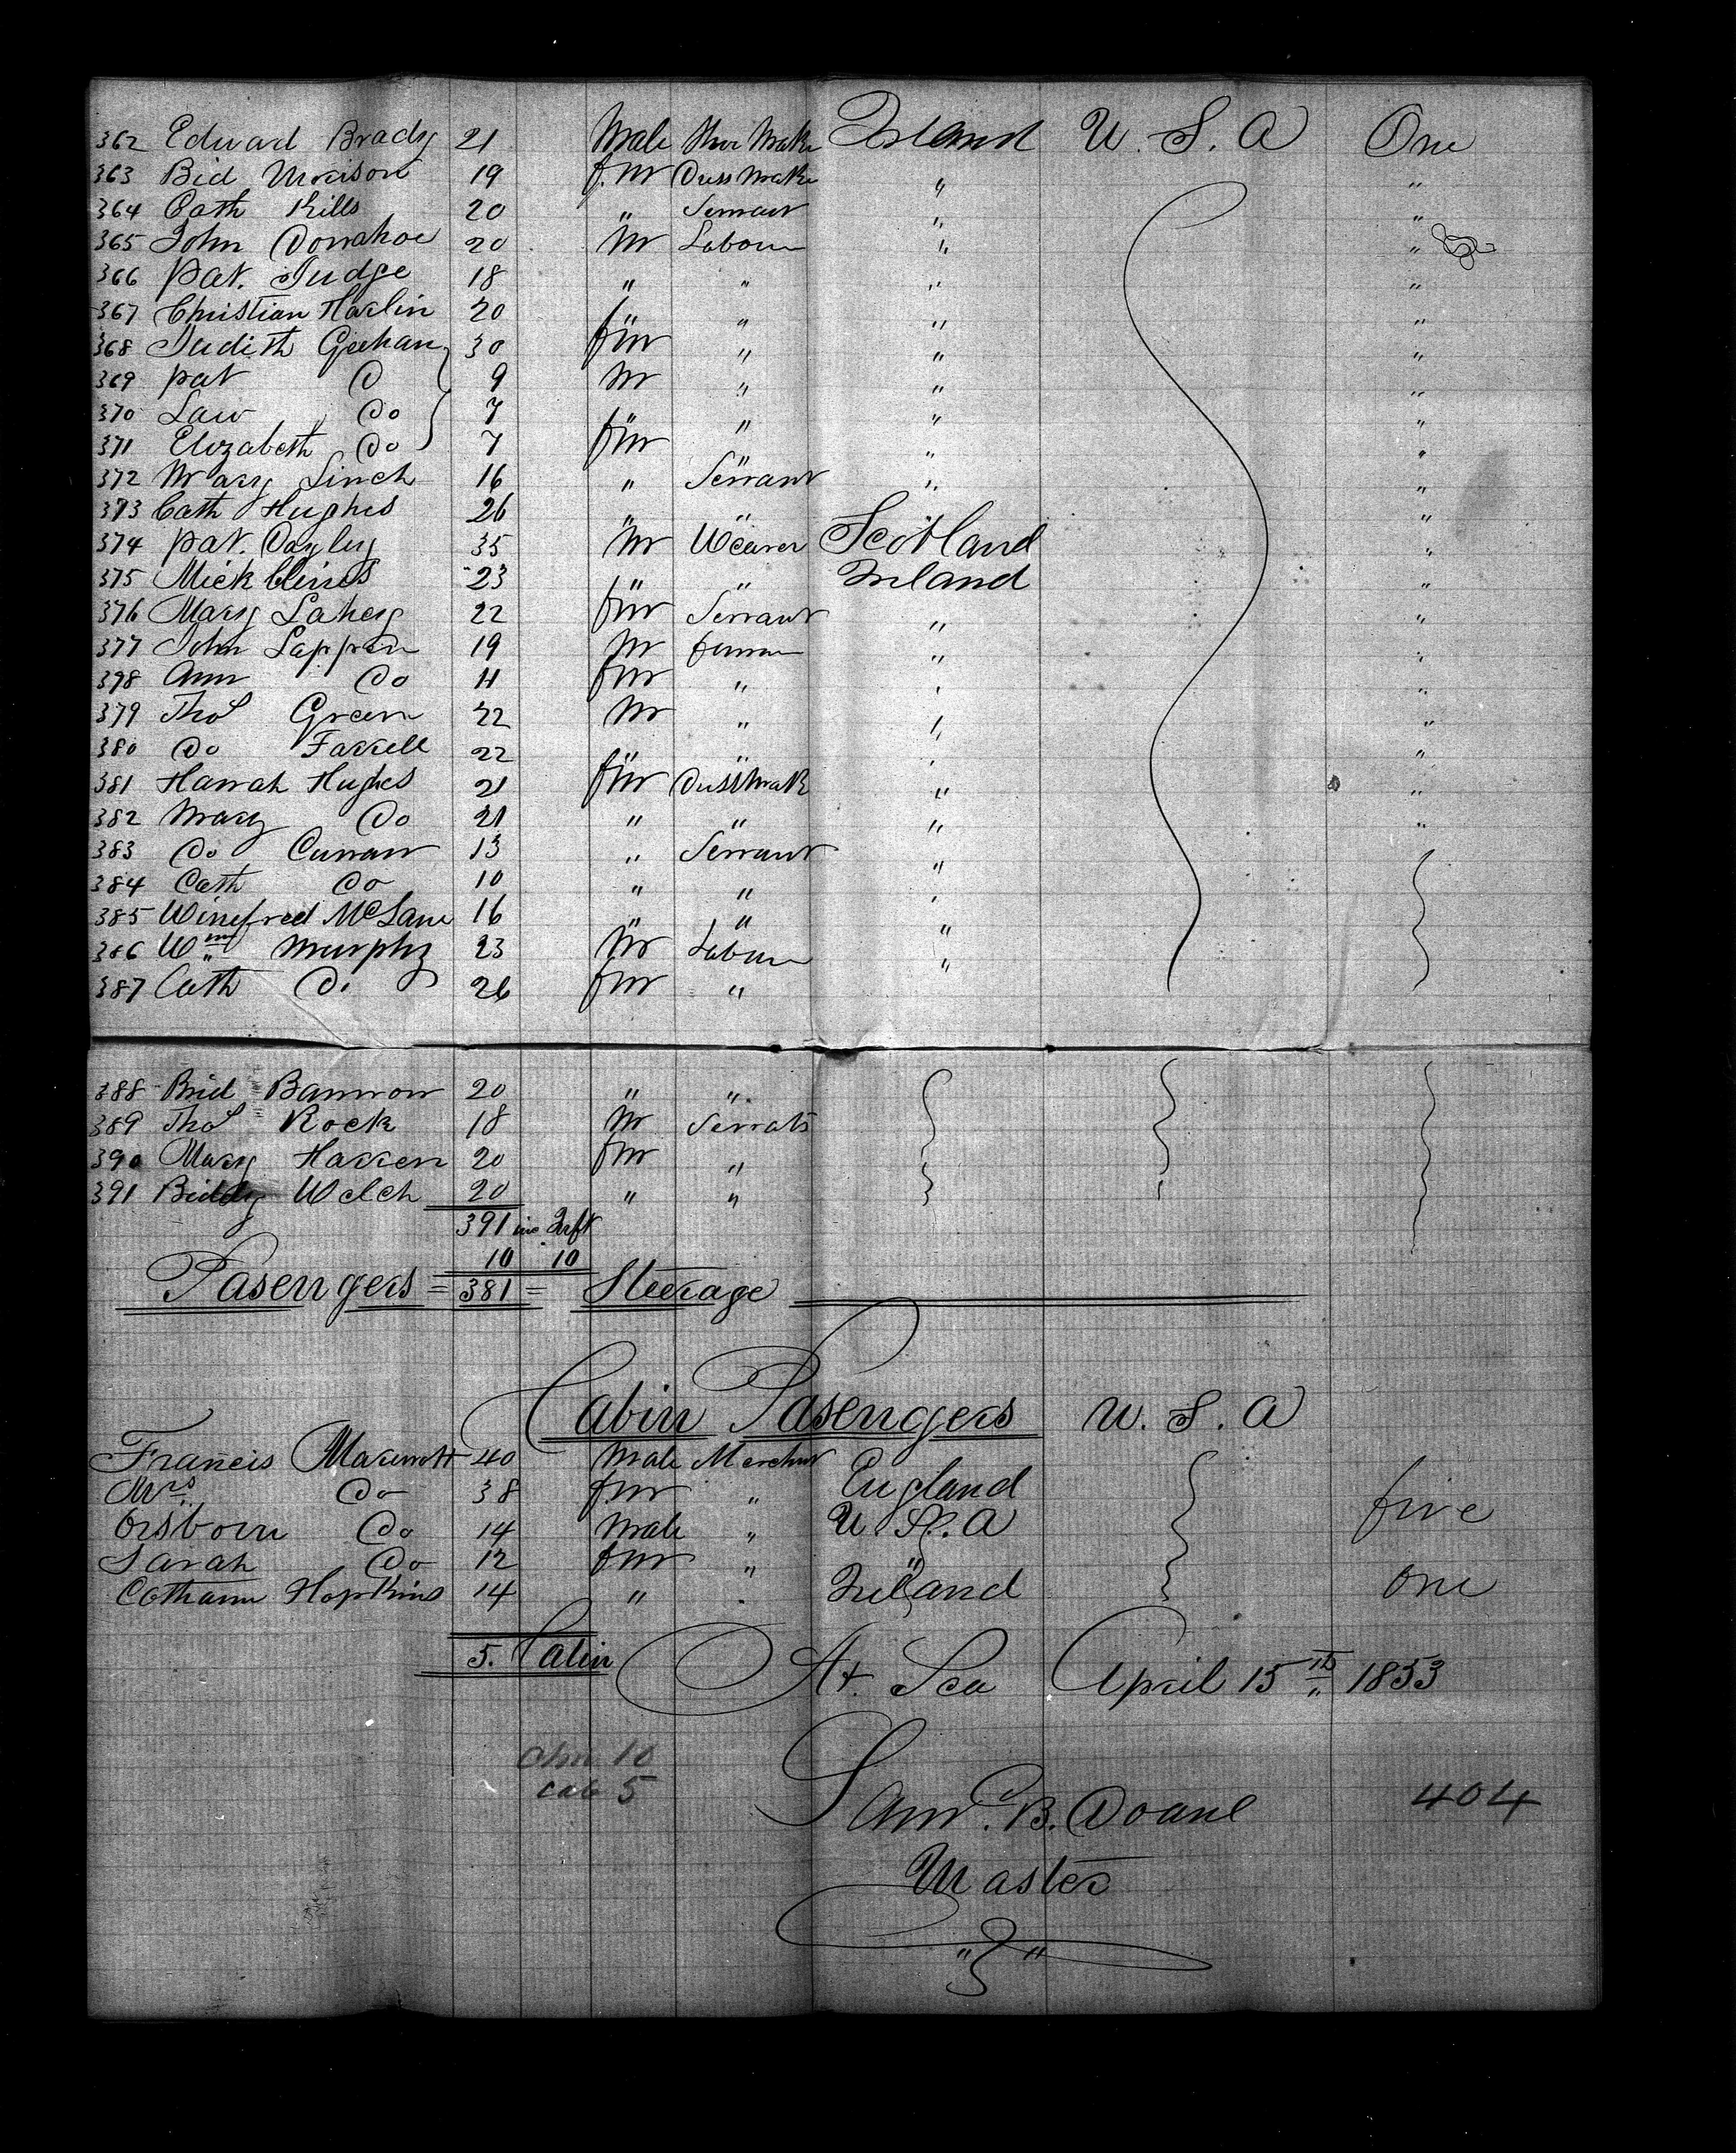 362 Edward Brady 21 Male Shoe Make Ireland U. S. A One
363 Bid Morison 19 f.m Dress Make " "
364 Cath Kills 20 " Servant " "
365 John Donahoe 20 M Labour " "
366 Pat. Judge 18 " " " "
367 Christian Harlin 20 " " " "
368 Judith Geehan 30 fm " " "
369 Pat D 9 M " " "
370 Law Do 7 " " " "
371 Elizabeth Do 7 fm " "
372 Mary Linch 16 " Servant " "
373 Cath Hughes 26 " " "
374 Pat. Dayley 35 M Weaver Scotland "
375 Mick Clines 23 " " Ireland "
376 Mary Lahey 22 fm Servant " "
377 John Lappan 19 M " "
398 Ann Do 11 fm " " "
379 Thos Green 22 M " " "
380 Do Farrell 22 " " " "
381 Hanah Hughes 21 fm Dressmak " "
382 Mary Do 21 " " " "
383 Do Curran 13 " Servant "
384 Cath Do 10 " " "
385 Winefred McLane 16 " " "
386 Wm Murphy 23 M Labour "
387 Cath Do 26 fm "
388 Brid Bannon 20 " "
389 Thos Rock 18 M Servats
390 Mary Harren 20 fm "
391 Biddy Welch 20 " "
391 inc
10 10
Pasengers = 381 = Steerage
Cabin Pasengers U. S. A
Francis 40 Male Merchnt England
Mrs Do 38 fm " five
Orsborn Do 14 Male " U S. A
Sarah Do 12 fm " "
Hopkins 14 " Ireland One
5. Cabin At Sea April 15th 1853
10
cab 5
Saml. B. Doane 404
Master